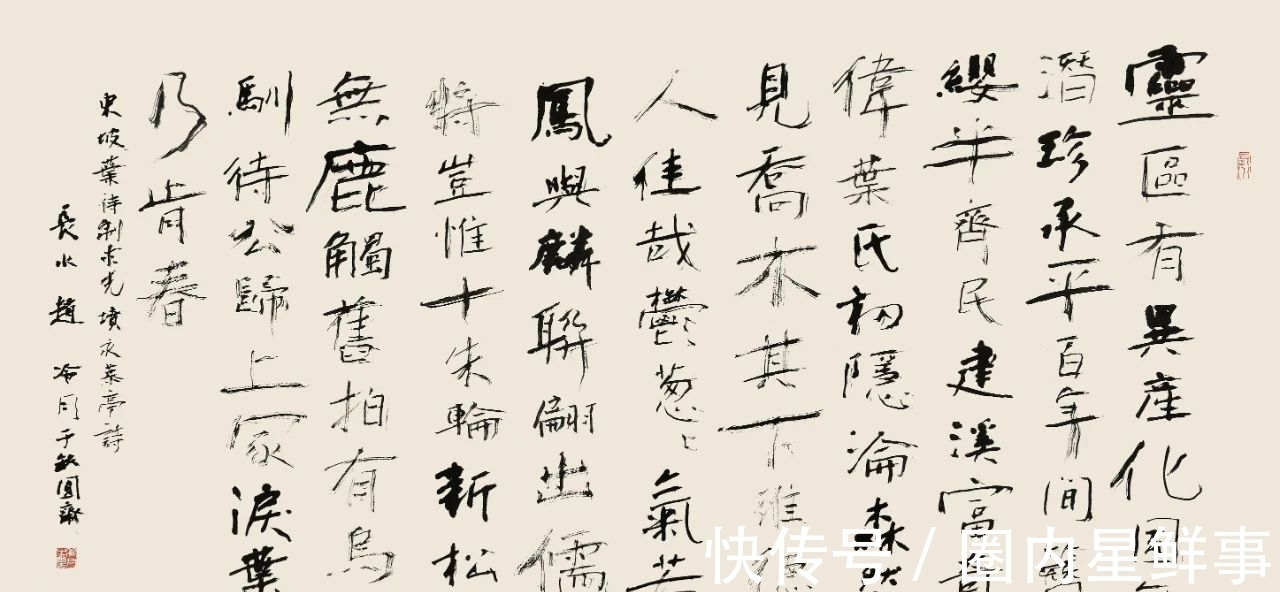 靈區有異產化國
潛珍承平百年間
纓半齊民建溪富
偉葉氏初隱淪森然
見喬木其下維德
人佳哉鬱葱々氣若
鳳與麟聯翩出儒
將豈惟十朱輪新松
無鹿觸舊柏有烏
馴待公歸上冢淚葉
乃肯春
東坡葉待制求先墳永慕亭詩
長水趙冷月于缺圓齋
快传号 / 圈内星鲜事